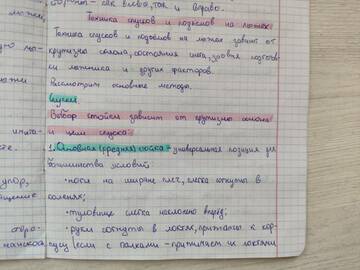 вортит - как влево, так и вправо.
Техника спусков и подъемов на лыжах.
Техника спусков и подъемов на лыжах зависит от
крутизны склона, состояния снега, уровня подготов-
ки лыжника и других факторов.
Рассмотрим основные методы.
Спуски.
Выбор стойки зависит от крутизны склона
и цели спуска:
1. Основная (средняя) стойка - универсальная позиция для
большинства условий:
• ноги на ширине плеч, слегка согнуты в
коленях;
• туловище слегка наклонено вперёд;
• руки согнуты в локтях, прижаты к кор-
пусу (если с палками - прижимает их локтями